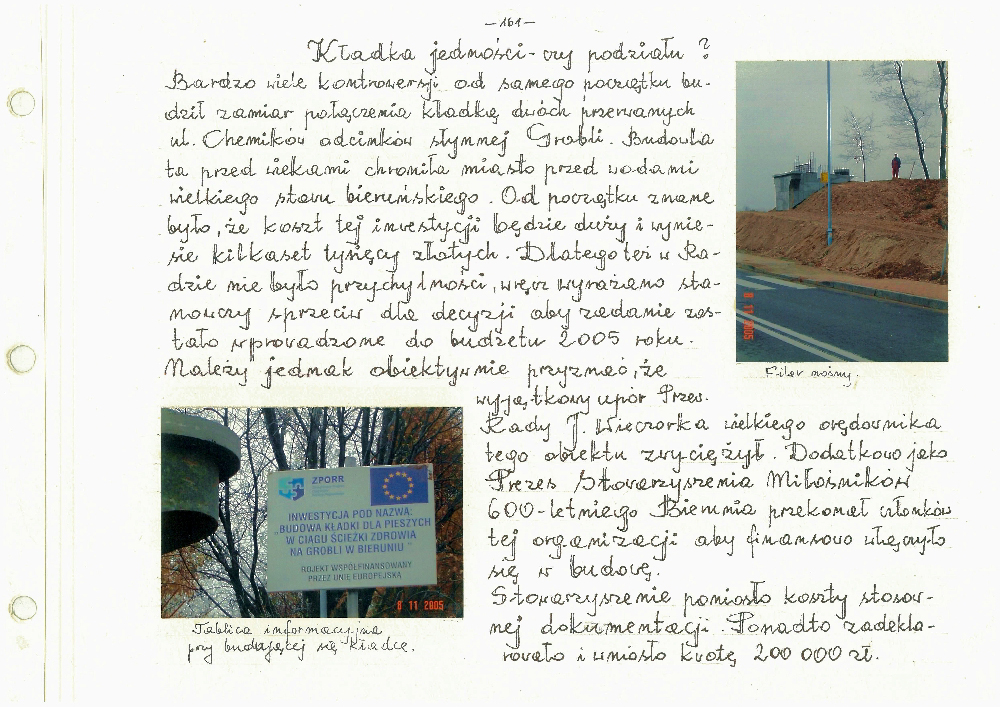 – 161 –
Kładka jedności - czy podziału ?
Bardzo wiele kontrowersji od samego początku bu-
dził zamiar połączenia kładką dwóch przerwanych
ul. Chemików odcinków słynnej Grobli. Budowla
ta przed wiekami chroniła miasto przed wodami
wielkiego stawu bieruńskiego. Od początku znane
było, że koszt tej inwestycji będzie duży i wynie-
sie kilkaset tysięcy złotych. Dlatego też w Ra-
dzie nie było przychylności, wręcz wyrażano sta-
nowczy sprzeciw dla decyzji aby zadanie zos-
tało wprowadzone do budżetu 2005 roku.
Należy jednak obiektywnie przyznać, że
wyjątkowy upór Przew.
Rady J. Wieczorka wielkiego orędownika
tego obiektu zwyciężył. Dodatkowo jako
Prezes Stowarzyszenia Miłośników
600-letniego Bierunia przekonał członków
tej organizacji aby finansowo włączyło
się w budowę.
Stowarzyszenie poniosło koszty stosow-
nej dokumentacji. Ponadto zadekla-
rowało i wniosło kwotę 200 000 zł.
8 11 2005
Filar nośny.
ZPORR
INWESTYCJA POD NAZWĄ:
„BUDOWA KŁADKI DLA PIESZYCH
W CIĄGU ŚCIEŻKI ZDROWIA
NA GROBLI W BIERUNIU"
ROJEKT WSPÓŁFINANSOWANY
PRZEZ UNIĘ EUROPEJSKĄ
8 11 2005
Tablica informacyjna
przy budującej się kładce.